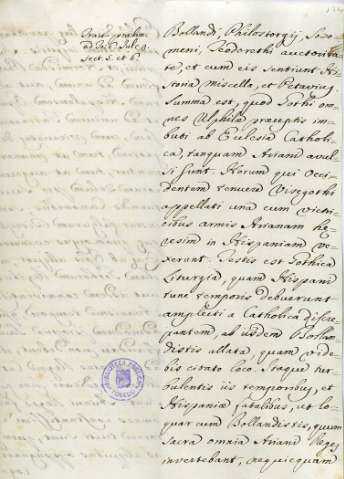 Bollandi, Philostorgij, Sozo-
meni, Teodorethi auctorita-
te, et cum eis sentiunt His-
toria Miscella, et Petavius.
Summa est, quod Gothi om-
nes Ulphilæ præceptis im-
buti ab Ecclesia Catholi-
ca, tanquam Ariani avul-
si sunt. Horum qui Occi-
dentem tenuere Visegothi
appellati una cum victri-
cibus armis Arianam hę-
resim in Hispaniam ve-
xerunt. Testis est Gothica
Liturgia, quam Hispani
tunc temporis debuerunt
amplecti a Catholica discre-
pantem, ab iisdem Bollan-
distis allata, quam vide-
bis citato loco. Itaque tur-
bulentis iis temporibus, et
Hispaniæ fatalibus, et lo-
quar cum Bollandistis, quum
sacra omnia Ariani Reges
invertebant, nequicquam